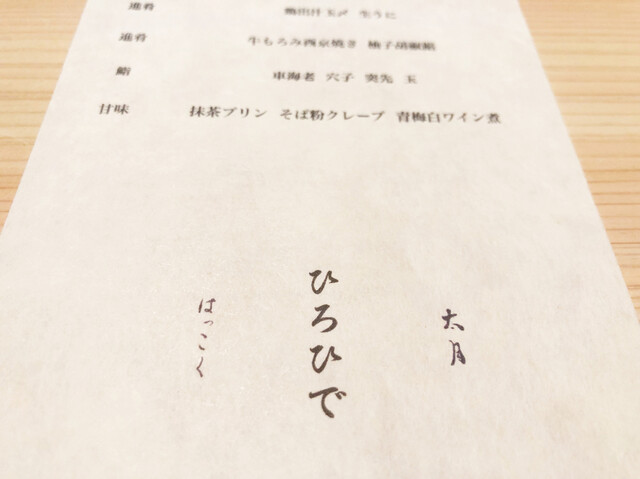 進肴 出汁 玉〆 生うに
進肴 牛もろみ西京焼き 柚子胡椒餡
鮨 車海老 穴子 突先 玉
甘味 抹茶プリン そば粉クレープ 青梅白ワイン煮
太月
ひろひで
はっこく